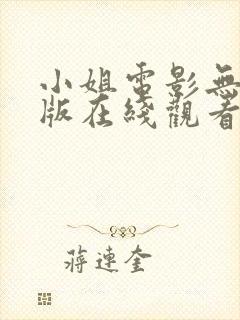 小姐電影無
版在綫觀看
蔣連奎